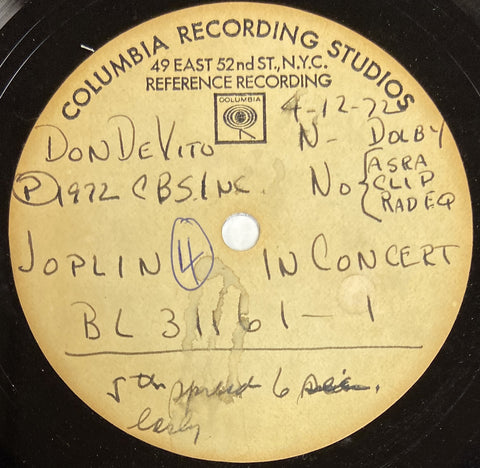 COLUMBIA RECORDING STUDIOS
49 EAST 52nd ST., N.Y.C.
REFERENCE RECORDING
COLUMBIA
4-12-72
DON DEVITO N- DOLBY
Ⓟ1972 CBS.INC. NO { ASRA
CLIP
RAD EQ
JOPLIN 4 IN CONCERT
BL 31161-1
5th spread 6
early